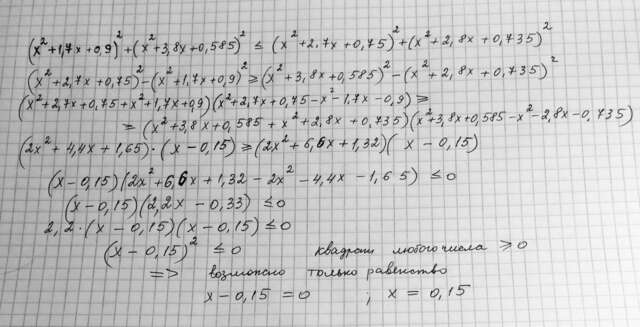 (x²+1,7x+0,9)²+(x²+3,8x+0,585)² ≤ (x²+2,7x+0,75)²+(x²+2,8x+0,735)²
(x²+2,7x+0,75)²−(x²+1,7x+0,9)² ≥ (x²+3,8x+0,585)²−(x²+2,8x+0,735)²
(x²+2,7x+0,75+x²+1,7x+0,9)(x²+2,7x+0,75−x²−1,7x−0,9) ≥
= (x²+3,8x+0,585+x²+2,8x+0,735)(x²+3,8x+0,585−x²−2,8x−0,735)
(2x²+4,4x+1,65)·(x−0,15) ≥ (2x²+6,6x+1,32)(x−0,15)
(x−0,15)(2x²+6,6x+1,32−2x²−4,4x−1,65) ≤0
(x−0,15)(2,2x−0,33) ≤0
2,2·(x−0,15)(x−0,15) ≤0
(x−0,15)² ≤0 квадрат любого числа ≥0
=> возможно только равенство
x−0,15=0 ; x=0,15